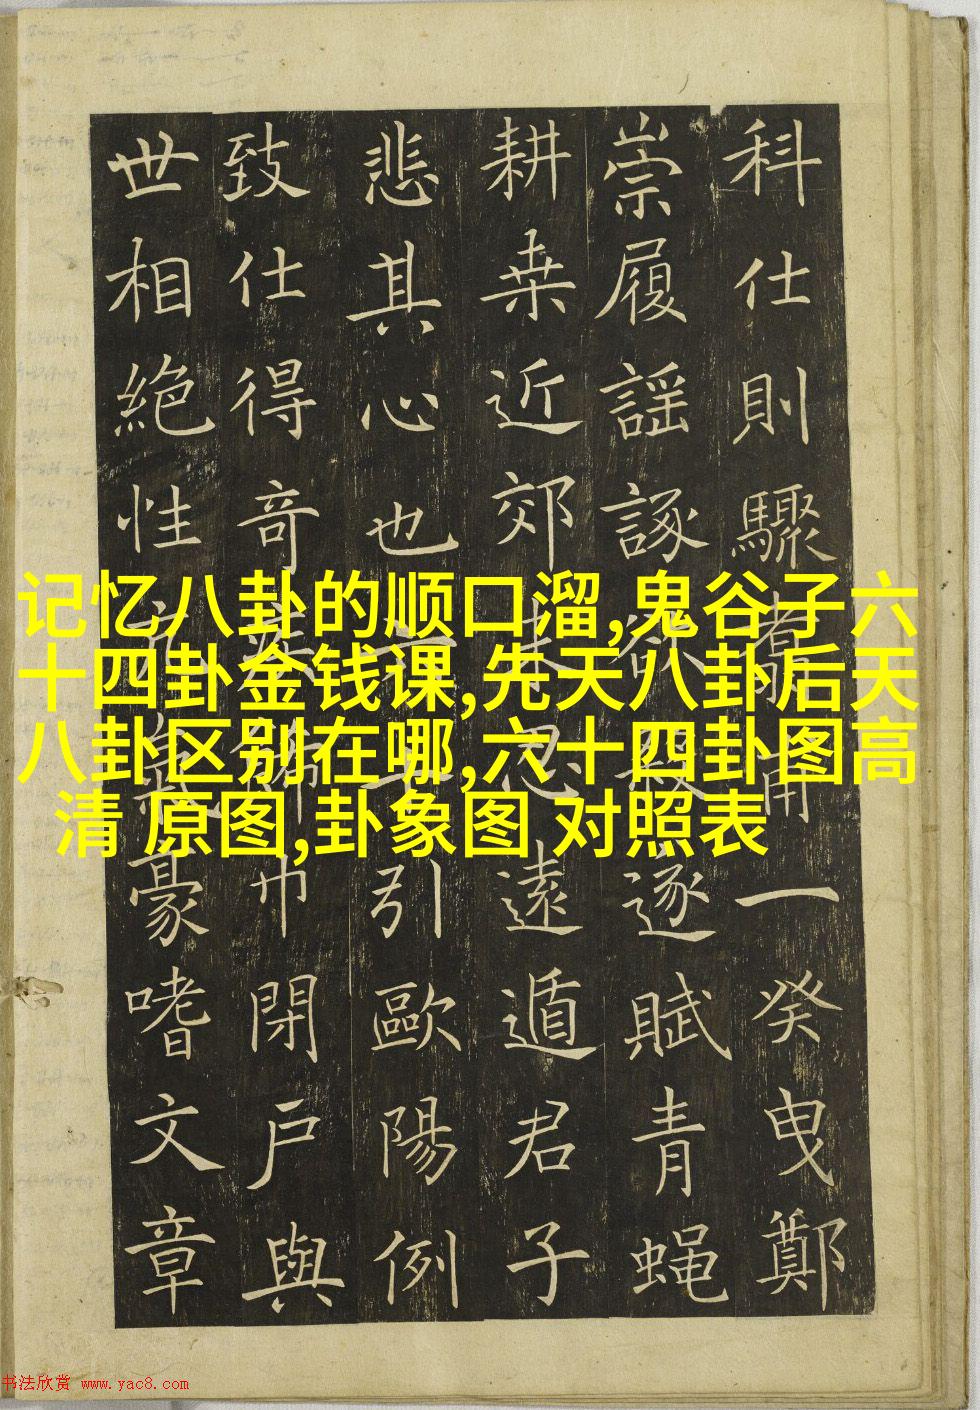 记忆八卦的顺口溜,鬼谷子六
十四卦金钱课,先天八卦后天
八卦区别在哪,六十四卦图高
清 原图,卦象图 对照表
科仕則驟甫一癸曳鄭
崇履謡諑欲逐賦青蝇
耕桒近郊遠遁君子
悲其心也引歐陽例
致仕得奇巾閉戸與
世相絶性豪嗜文章
书法欣赏 www.yac8.com